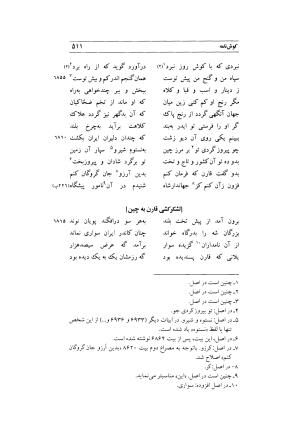 کوش‌نامه ۵۱۱
نبردی که با کوش روز نبرد(۲) درآورد گوید که از راه برد(۲)
سپاه من و گنج من پیش توست همان گنجم اندر کم و بیش توست ۶۸۵۵
ز دینار و اسب و قبا و کلاه ببخش و بر چندخواهی به‌راه
مگر رنج او کم کنی زین میان که او ماند از تخم ضحّاکیان
جهان آنگهی گردد از رنج پاک که آن بدگهر نیز گردد هلاک
گر او را فرستی تو ایدر به‌بند کلاهت برآید به‌چرخ بلند
ببینم یکی روی آن دیو زشت که چندان دلیران ایران بکشت ۶۸۶۰
چو پیروز گردی تو بر مرز چین به‌نستوه شیرو سپار آن زمین
بدو ده تو آن کشور و تاج و تخت تو برگرد شادان و پیروزبخت
بدو گفت قارن که فرمان کنم بدین آرزو جان گروگان کنم
فزون زآن کنم کز جهاندارشاه شنیدم در آن نامور پیشگاه (۲۲۶پ)
[لشکرکشی قارن به چین]
برون آمد از پیش تخت بلند به‌هر سو درافگند پویان نوند ۶۸۶۵
بزرگان شه را به‌درگاه خواند چنان کاندر ایران سواری نماند
از آن نامداران گزیده سوار برآمد گه عرض سیصدهزار
یلانی که قارن پسندیده بود گه رزمشان یک به یک دیده بود
۱ـ چنین است در اصل.
۲ـ چنین است در اصل.
۳ـ چنین است در اصل.
۴ـ در اصل: تو بیروز گردی جو.
۵ـ در اصل: نستوه و شیرو. در ابیات دیگر (۶۹۳۳ و ۶۹۳۶ و...) از این شخص
تنها با لفظ «نستوه» یاد شده است.
۶ـ در اصل، این بیت، پس از بیت ۶۸۶۴ نوشته شده است.
۷ـ در اصل: کزرو. باتوجه به مصراع دوم بیت ۸۶۲۰ «بدین آرزو جان گروگان
کنم» اصلاح شد.
۸ـ در اصل: کر.
۹ـ چنین است در اصل، «این» مناسبتر می‌نماید.
۱۰ـ در اصل افزوده: سواری.